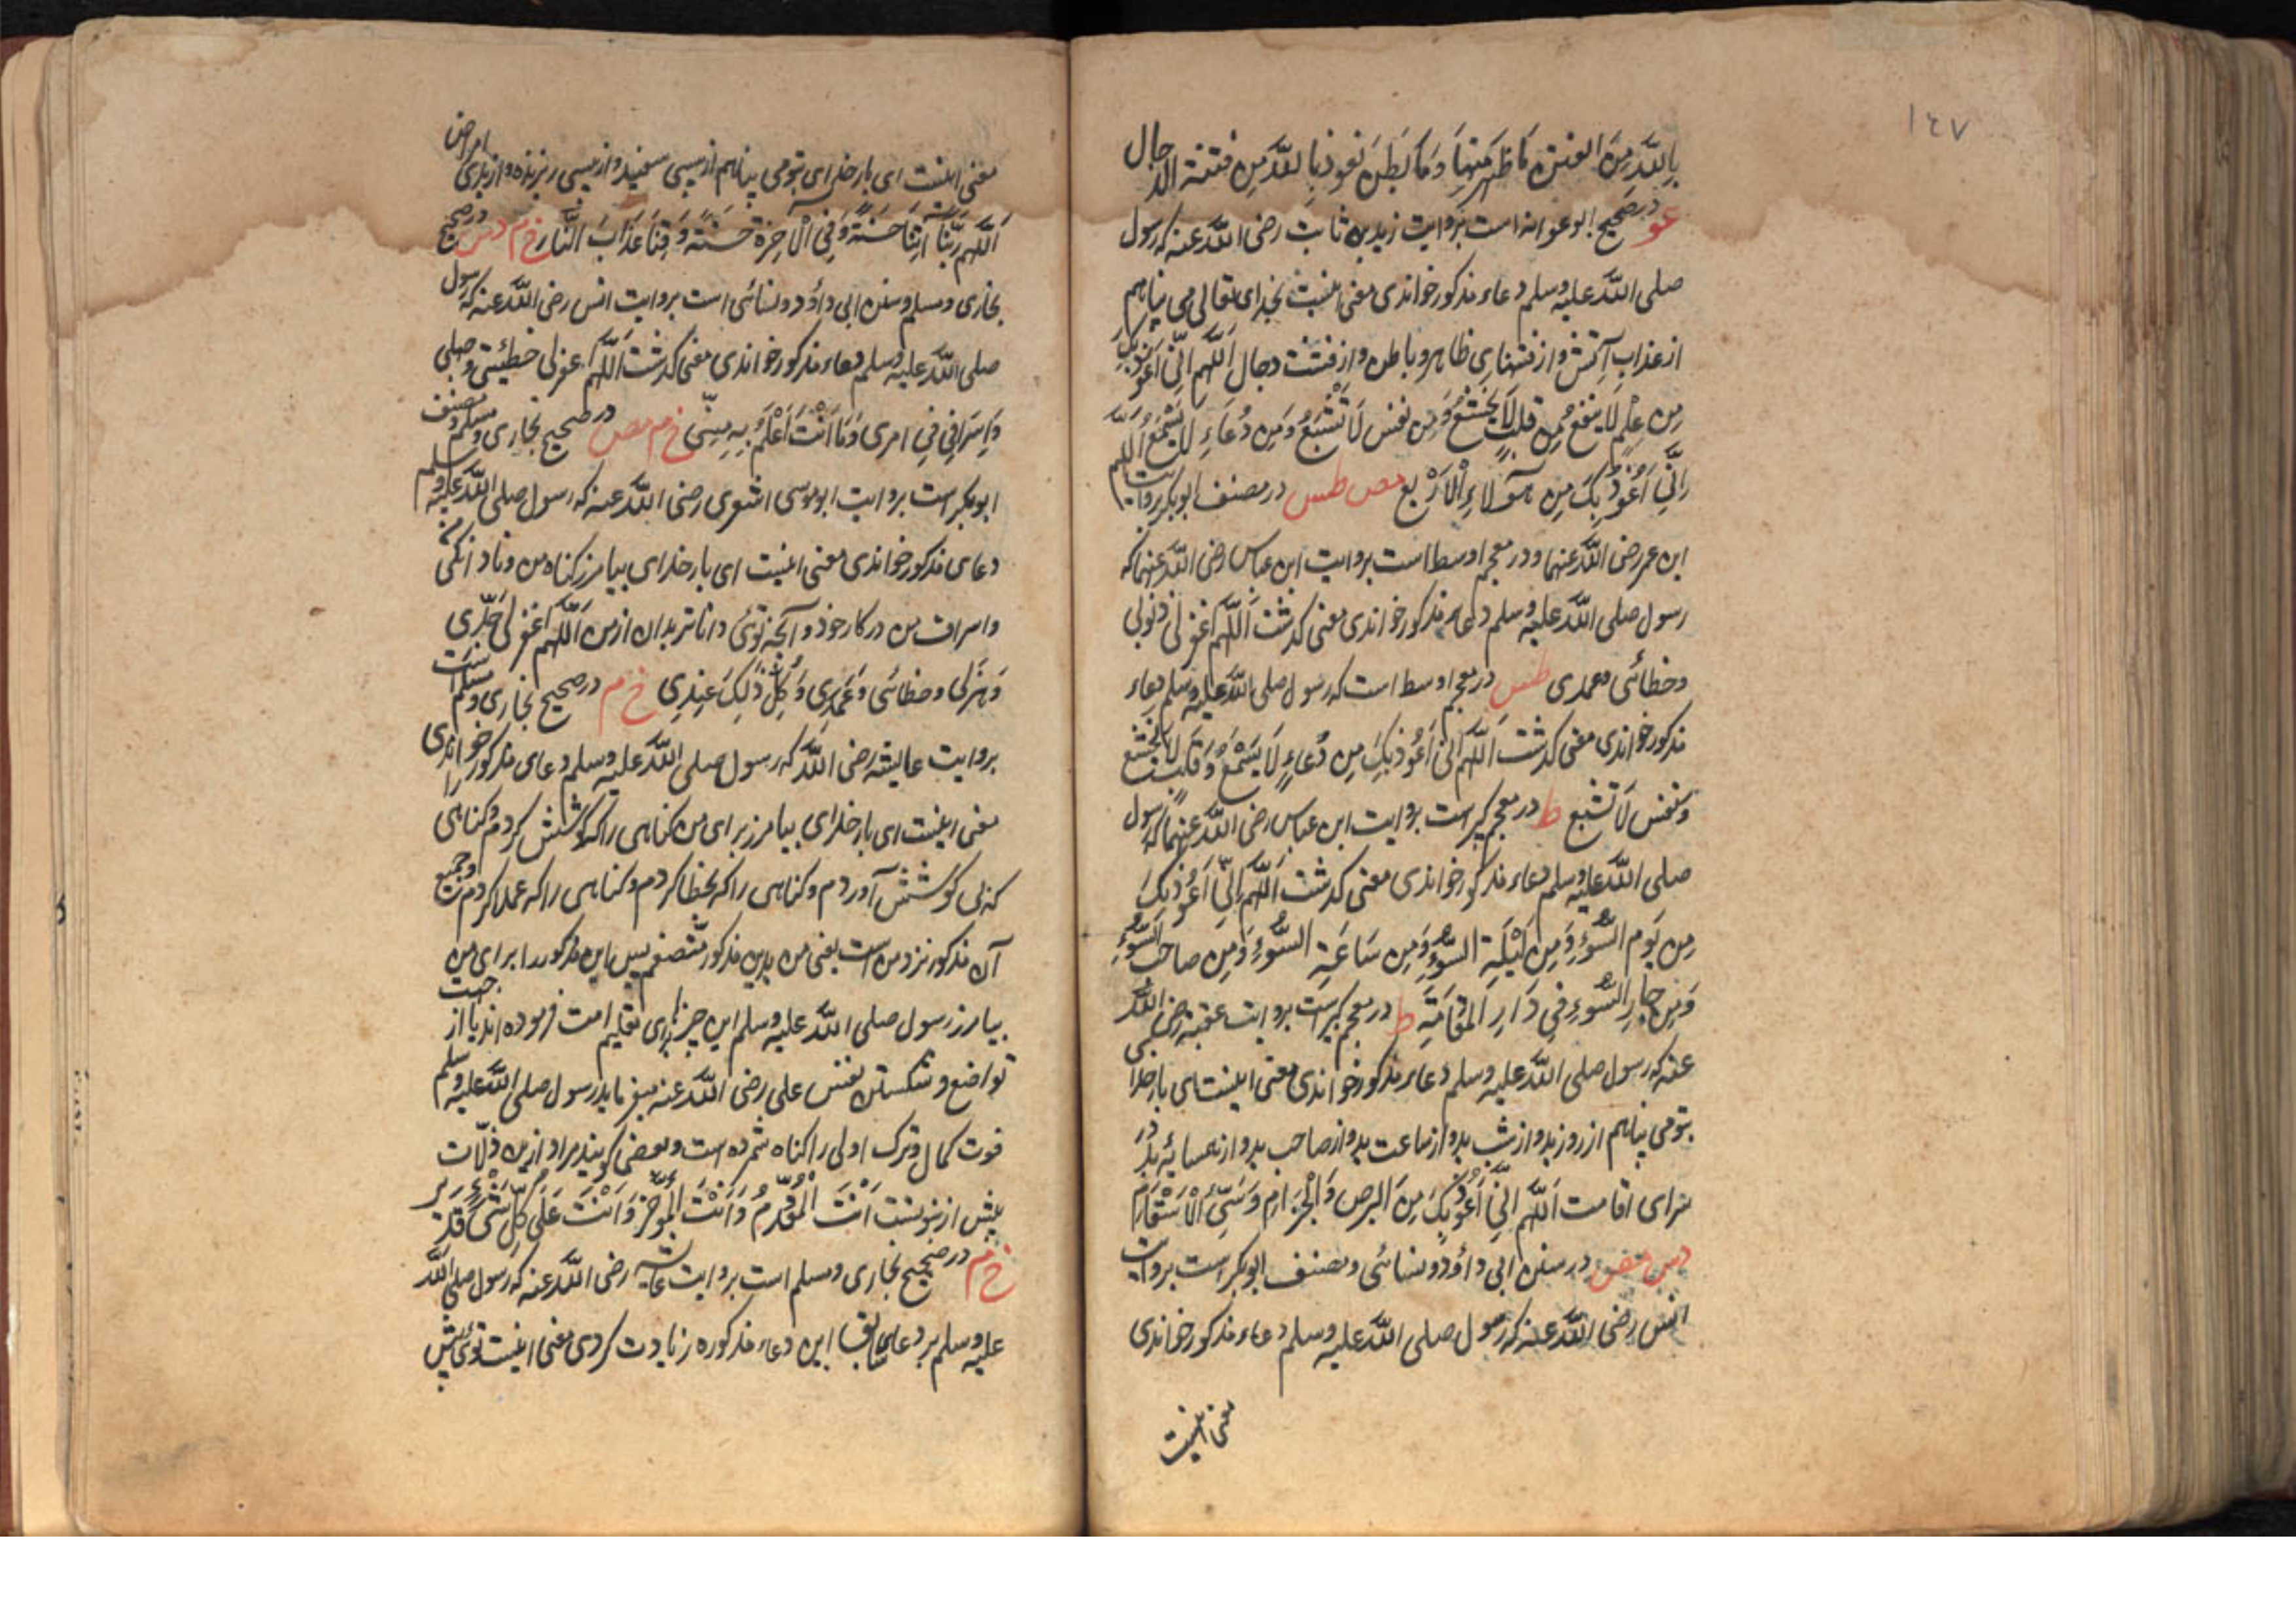 ١٤٧
بِاللَّه مِنَ الفتن مَا ظَهَر مِنهَا وَمَا بَطَنَ نعوذ بِاللَّه مِن فتنة الدجال
عو در صحیح ابو عوانه است بروایت زید بن ثابت رضی اللّه عنه که رسول
صلی اللّه علیه وسلم دعاء مذکور خواندی معنی اینست بخدای تعالی می پناهم
از عذاب آتش و از فتنهای ظاهر و باطن و از فتنت دجال اَللّهم اِنّی اَعُوذ بک
مِن عِلمٍ لا ینفع وَمِن قلبٍ لَا یَخشَعُ وَمِن نفس لَا تَشْبَعُ وَمِن دُعَاءٍ لَا یُسْمَعُ اَللّهم
اِنّی اَعُوذُ بِکَ مِن هَؤلاءِ الْاَرْبع مص طس در مصنف ابوبکر بروایت
ابن عمر رضی اللّه عنهما و در معجم اوسط است بروایت ابن عباس رضی اللّه عنهما که
رسول صلی اللّه علیه وسلم دعاء مذکور خواندی معنی گذشت اَللّهم اغفر لی ذنوبی
وخطائی وعمدی طس در معجم اوسط است که رسول صلی اللّه علیه وسلم دعاء
مذکور خواندی معنی گذشت اَللّهم اِنّی اَعُوذ بِکَ مِن دُعَاءٍ لَا یُسْمَعُ وَقَلبٍ لَا یَخشع
ونفس لَا تشبع ط در معجم کبیر است بروایت ابن عباس رضی اللّه عنهما که رسول
صلی اللّه علیه وسلم دعاء مذکور خواندی معنی گذشت اَللّهم اِنّی اَعُوذُ بِکَ
مِن یَوم السُّوءِ وَمِن لَیْلَةِ السُّوءِ وَمِن سَاعَةِ السُّوءِ وَمِن صاحب السُّوءِ
وَمِن جارِ السُّوءِ فِی دَارِ المُقَامَةِ ط در معجم کبیر است بروایت عقبه رضی اللّه
عنه که رسول صلی اللّه علیه وسلم دعاء مذکور خواندی معنی اینست ای بار خدای
بتو می پناهم از روز بد و از شب بد و از ساعت بد و از صاحب بد و از همسایۀ بد در
سرای اقامت اَللّهم اِنّی اَعُوذُ بِکَ مِنَ البرص وَالْجُذام وَسَیّئ الاَسْقام
دس مص در سنن ابی داؤد و نسائی و مصنف ابوبکر است بروایت
انس رضی اللّه عنه که رسول صلی اللّه علیه وسلم دعاء مذکور خواندی
معنی اینست
معنی اینست ای بار خدای بتو می پناهم از پیسی سفید و از پیسی ریزنده و از بدی امراض
اَللّهم رَبَّنَا آتِنَا حَسَنَةً وَفِی الْآخِرَة حَسَنَةً وَقِنَا عَذَابَ النَّار خ م د س در صحیح
بخاری و مسلم و سنن ابی داؤد و نسائی است بروایت انس رضی اللّه عنه که رسول
صلی اللّه علیه وسلم دعاء مذکور خواندی معنی گذشت اَللّهم اغفر لی خطیئتی وجهلی
وَاِسْرَافِی فِی امری وَمَا اَنْتَ اَعْلَمُ بِهِ مِنِّی خ م مص در صحیح بخاری و مسلم و مصنف
ابوبکر است بروایت ابو موسی اشعری رضی اللّه عنه که رسول صلی اللّه علیه وسلم
دعای مذکور خواندی معنی اینست ای بار خدای بیامرز گناه من و نادانگی
و اسراف من در کار خود و آنچه توئی داناتر بدان از من اَللّهم اغفر لی جِدّی
وَهَزْلی وخطائی وَعَمْدِی وَکُلُّ ذٰلِکَ عِنْدِی خ م در صحیح بخاری و مسلم است
بروایت عایشه رضی اللّه که رسول صلی اللّه علیه وسلم دعای مذکور خواندی
معنی اینست ای بار خدای بیامرز برای من گناهی را که کوشش کردم و گناهی را
که بی کوشش آوردم و گناهی را که بخطا کردم و گناهی را که عمدا کردم و جمیع
آن مذکور نزد من است یعنی من بدین مذکور متصفم پس این مذکور را برای من
بیامرز رسول صلی اللّه علیه وسلم این چیز برای تعلیم امت فرموده اند یا از جهت
تواضع و شکستن نفس علی رضی اللّه عنه میفرماید رسول صلی اللّه علیه وسلم
فوت کمال و ترک اولی را گناه شمرده است و بعضی گویند مراد ازین ذلّات
پیش از نبوتست اَنْتَ الْمُقَدِّمُ وَاَنْتَ الْمُؤَخِّرُ وَاَنْتَ عَلَی کُلِّ شَیْءٍ قدیر
خ م در صحیح بخاری و مسلم است بروایت عایشه رضی اللّه عنه که رسول صلی اللّه
علیه وسلم بر دعای سابق این دعاء مذکوره زیادت کردی معنی اینست توئی پیش